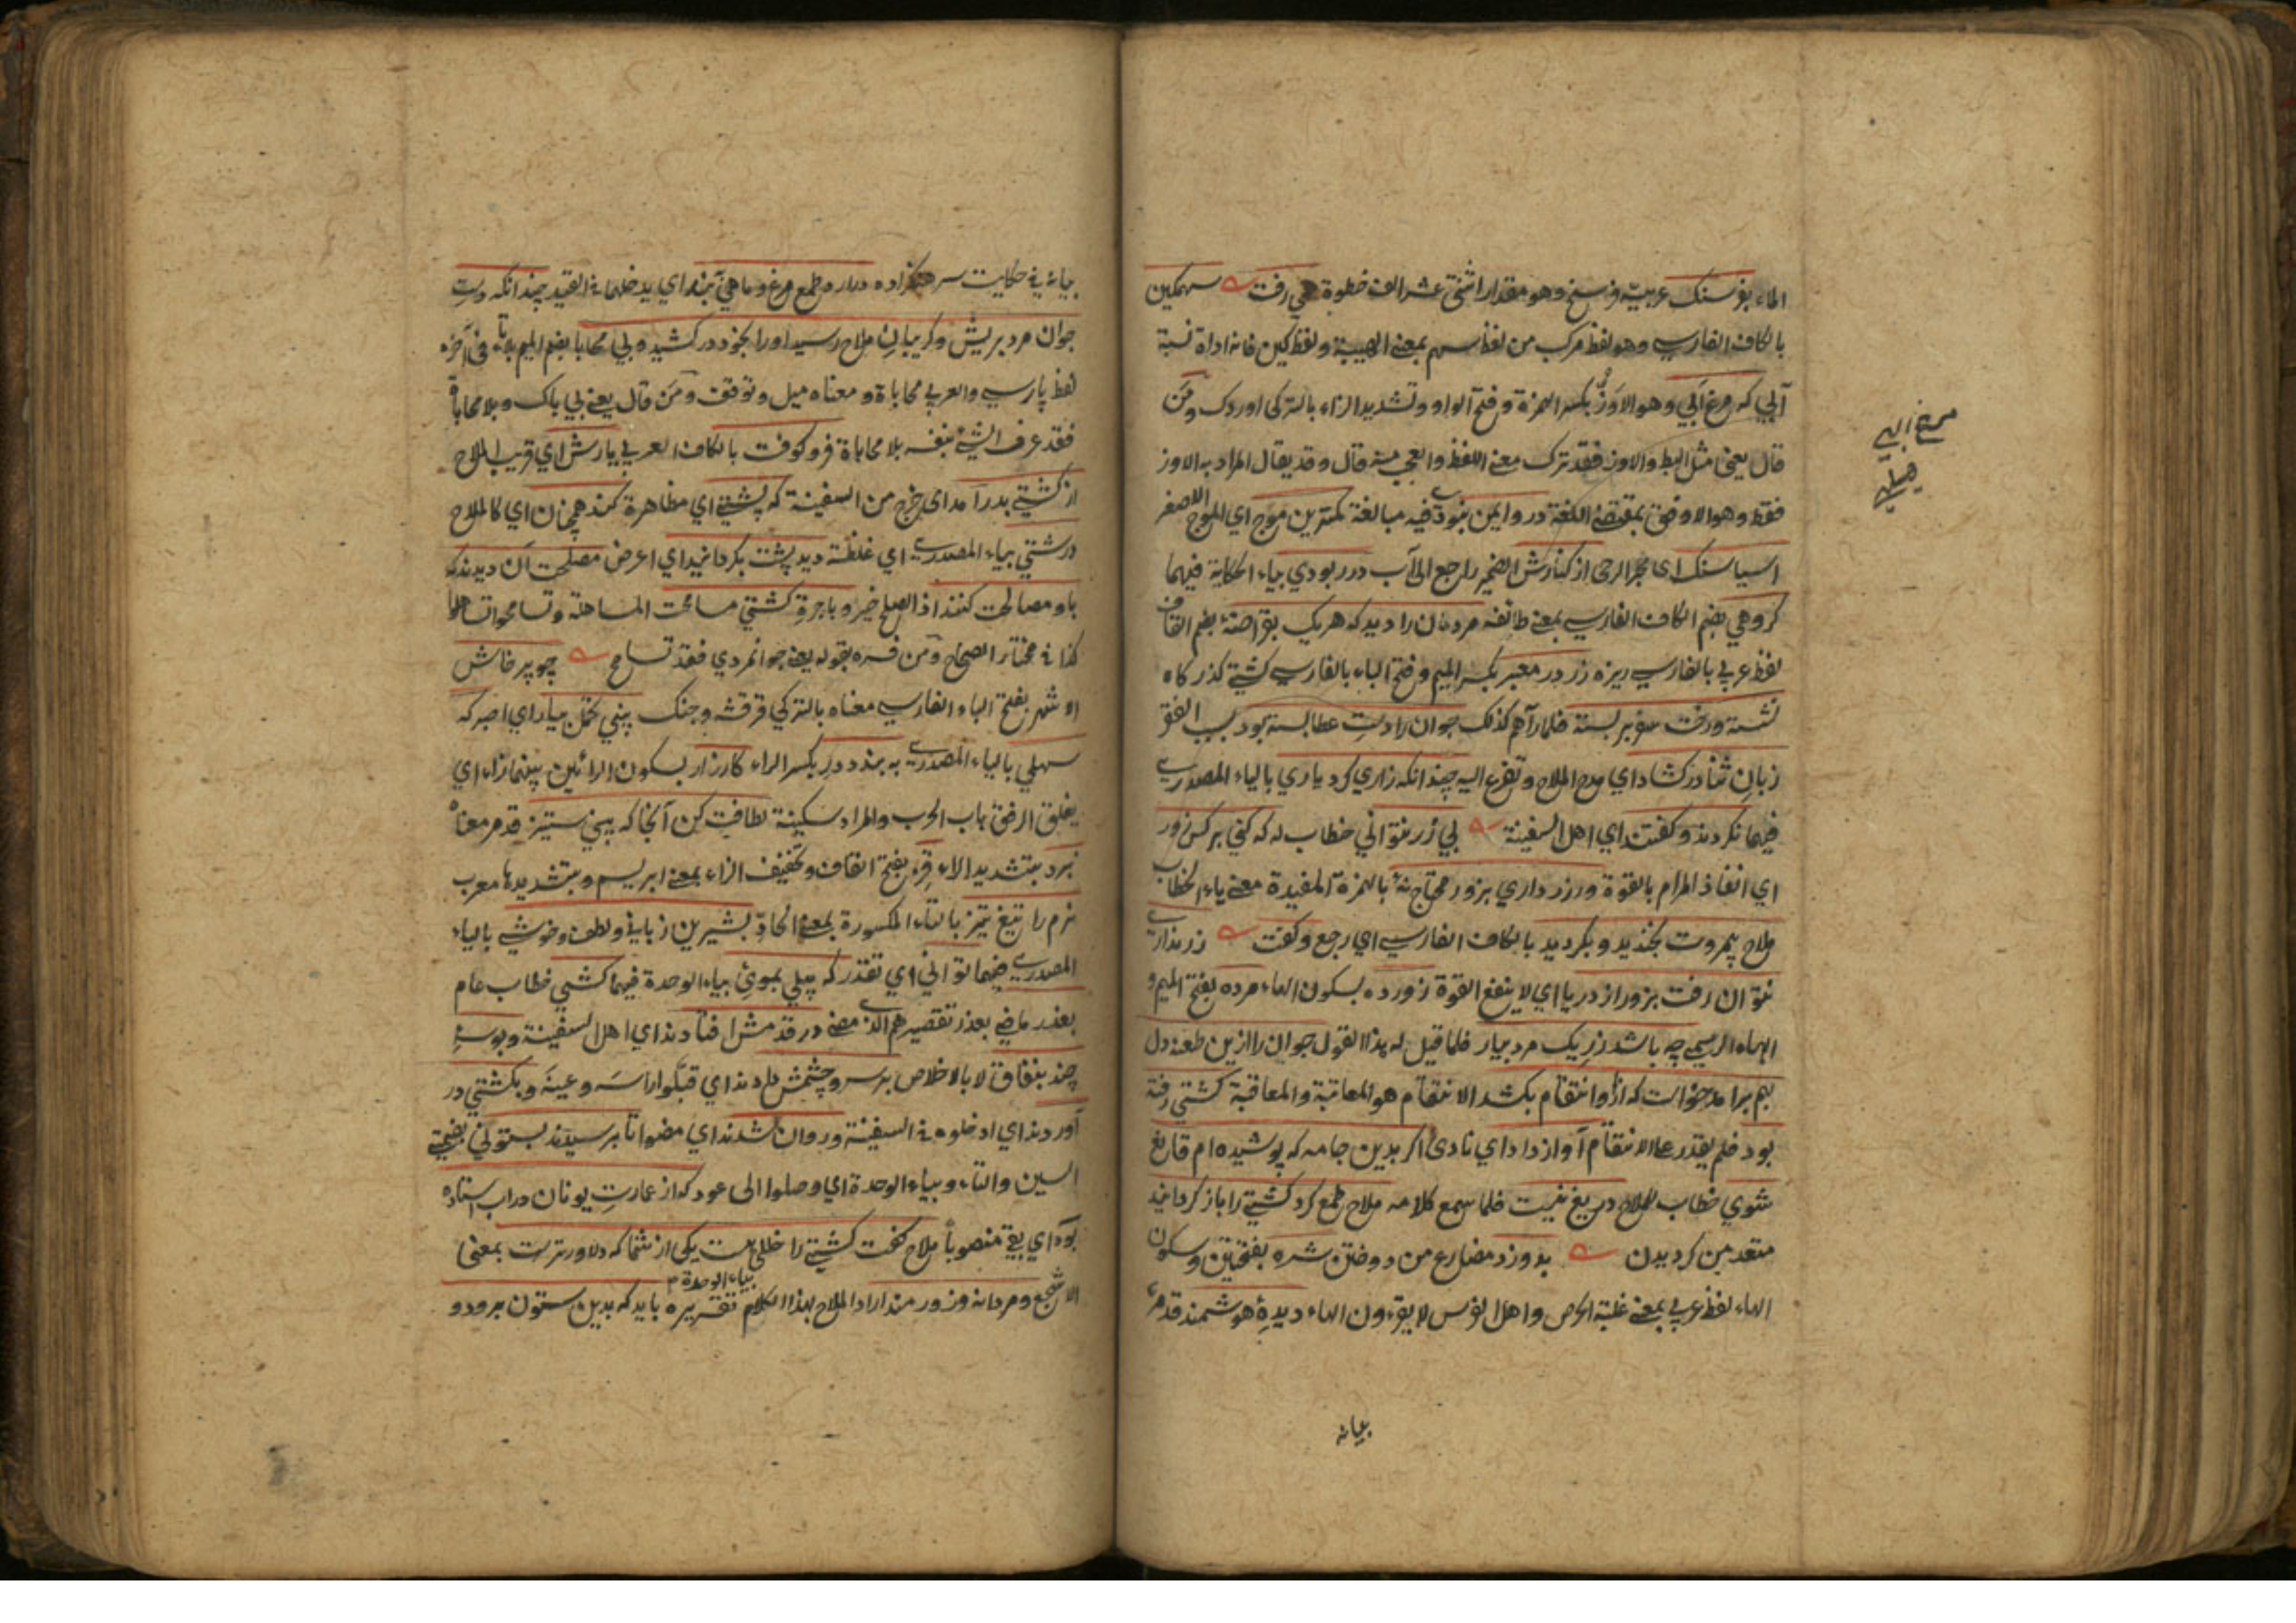 الماء بفرسنك عربيّة فرسخ وهو مقدار اثنى عشر الف خطوة همي رفت سهمكين
بالكاف الفارسي وهو لفظ مركب من لفظ سهم بمعنى الهيبة ولفظ كين فانه اداة نسبة
آبي كه مرغ آبي وهو الاوزّ بكسر الهمزة وفتح الواو وتشديد الزاء بالتركى اوردك ومن
قال يعنى مثل البط والاوز فقد ترك معنى اللفظ والعجب منه قال وقد يقال المراد به الاوز
فقط وهو الاوفق بمقتضى اللغة درو ايمن نبودى فيه مبالغة كمترين موج اى الموج الاصغر
اسيا سنك اى حجر الرحى از كنارش الضمير راجع الى آب در ربودي بياء الحكاية فيهما
كروهي بضم الكاف الفارسي بمعنى طائفه مردمان را ديد كه هر يك بقراضهٔ بضم القاف
لفظ عربي بالفارسي ريزه زر در معبر بكسر الميم وفتح الباء بالفارسي كشتي كذركاه
نشسته ورخت سفر بر بسته فلما رآهم كذلك جوان را دست عطا بسته بود بسبب الفقر
زبان ثنا در كشاد اي مدح الملاح وتضرع اليه چندانكه زاري كرد ياري بالياء المصدري
فيهما نكردند وكفتند اي اهل السفينة بي زر نتواني خطاب له كه كني بر كس زور
اي انفاذ المرام بالقوة ور زر داري بزور محتاج نهٔ بالهمزة المفيدة معنى ياء الخطاب
ملاح بيمروت بخنديد وبكرديد بالكاف الفارسي اي رجع وكفت زر ندارى
نتوان رفت بزور از دريا اي لا ينفع القوة زور ده بسكون الهاء مرده بفتح الميم و
الهاء الرسمي چه باشد زر يك مرد بيار فلما قيل له هذا القول جوان را ازين طعنه دل
بهم برامد خواست كه ازو انتقام بكشد الانتقام هو المعاتبة والمعاقبة كشتي رفته
بود فلم يقدر على الانتقام آواز داد اي نادى اكر بدين جامه كه پوشيده ام قانع
شوي خطاب للملاح دريغ نيست فلما سمع كلامه ملاح طمع كرد كشتي را باز كردانيد
متعد من كرديدن بدوزد مضارع من دوختن شره بفتحتين وسكون
الهاء لفظ عربي بمعنى غلبة الحرص واهل الفرس لا يقرءون الهاء ديدهٔ هوشمند قد مر
بيانه
مرغ ابى
بيانه في حكايت سرهنكزاده درارد طمع مرغ وماهي ببند اي يدخلهما في القيد چندانكه دست
جوان مرد بريش وكريبان ملاح رسيد اورا بخود در كشيد وبي محابا بضم الميم بلا تاء في آخره
لفظ پارسي والعربي محاباة ومعناه ميل وتوقف ومن قال يعنى بي باك وبلا محاباة
فقد عرف الشئ بنفسه بلا محاباة فرو كوفت بالكاف العربي يارش اي قريب الملاح
از كشتي بدر آمد اى خرج من السفينة كه پشتي اي مظاهرة كند همچنان اي كالملاح
درشتي بياء المصدري اي غلظة ديد پشت بكردانيد اي اعرض مصلحت آن ديدند كه
باو مصالحت كنند اذ الصلح خير وباجرة كشتي مسامحت المساهلة وتسامحوا تساهلوا
كذا في مختار الصحاح ومن فسره بقوله يعنى جوانمردي فقد تسامح چو پرخاش
الاشهر بفتح الباء الفارسي معناه بالتركي قرقشه وجنك بيني تحمل بيار اي اصبر كه
سهلي بالياء المصدري ببندد در بكسر الراء كارزار بسكون الرائين بينهما زاء اي
يغلق الرفق باب الحرب والمراد سكينة لطافت كن آنجا كه بيني ستيز قد مر معناه
نبرد بتشديد الراء قز بفتح القاف وتخفيف الزاء بمعنى ابريسم وبتشديدها معرب
نرم را تيغ تيز بالتاء المكسورة بمعنى الحادّ بشيرين زباني ولطف وخوشي بالياء
المصدري فيهما تواني اي تقدر كه پيلي بمويى بياء الوحدة فيهما كشي خطاب عام
بعذر ماضي بعذر تقصيرهم الذى مضى در قدمش افتادند اي اهل السفينة وبوسهٔ
چند بنفاق لا بالاخلاص بر سر وچشمش دادند اي قبّلوا راسه وعينه وبكشتي در
آوردند اي ادخلوه في السفينة وروان شدند اي مضوا تا برسيدند بستوني بضمتي
السين والتاء وبياء الوحدة اي وصلوا الى عود كه از عمارت يونان در اب استاده
بود اي بقي منصوبا ملاح كفت كشتي را خللى هست يكى از شما كه دلاورترست بمعنى
الاشجع ومردانه وزورمند اراد الملاح بهذا الكلام تقريره بايد كه بدين ستون برود و
بياء الوحدة